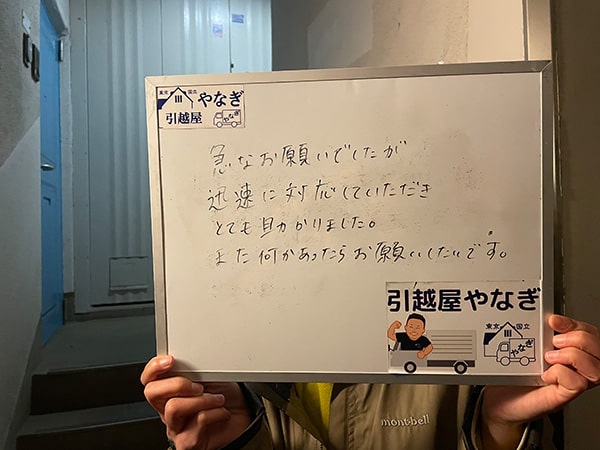 東京 国立 やなぎ
引越屋 やなぎ
急なお願いでしたが
迅速に対応していただき
とても助かりました。
また何かあったらお願いしたいです。
引越屋やなぎ
東京 国立
やなぎ
mont-bell